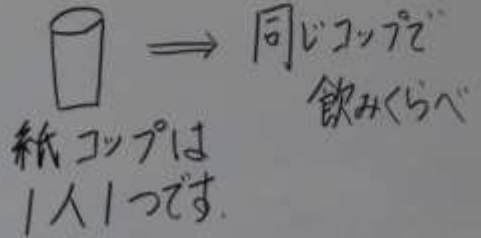 同じコップで
飲みくらべ
紙コップは
1人1つです.